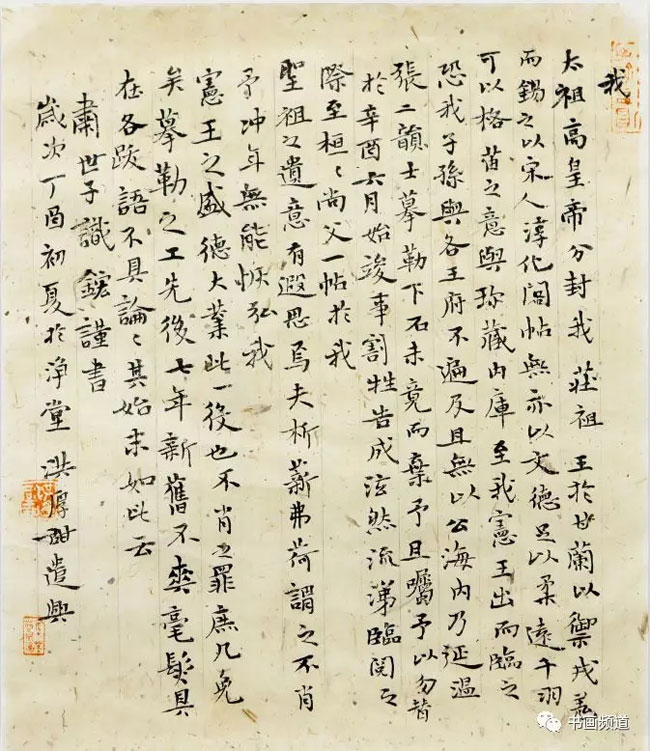 我
太祖高皇帝分封我莊祖王於甘蘭以禦戎羌
而錫之以宋人淳化閣帖無亦以文德足以柔遠干羽
可以格苗之意與珍藏內庫至我憲王出而臨之
恐我子孫與各王府不遍及且無以公海內乃延溫
張二韻士摹勒下石未竟而棄予且囑予以勿替
於辛酉六月始竣事割牲告成泫然流涕臨閱之
際至桓〻尚父一帖於我
聖祖之遺意有遐思焉夫析薪弗荷謂之不肖
予沖年無能恢弘我
憲王之盛德大業此一役也不肖之罪庶几免
矣摹勒之工先後七年新舊不爽毫髮具
在各跋語不具論〻其始末如此云
肅世子識鋐謹書
歲次丁酉初夏於淨堂洪厚甜遣興
书画频道